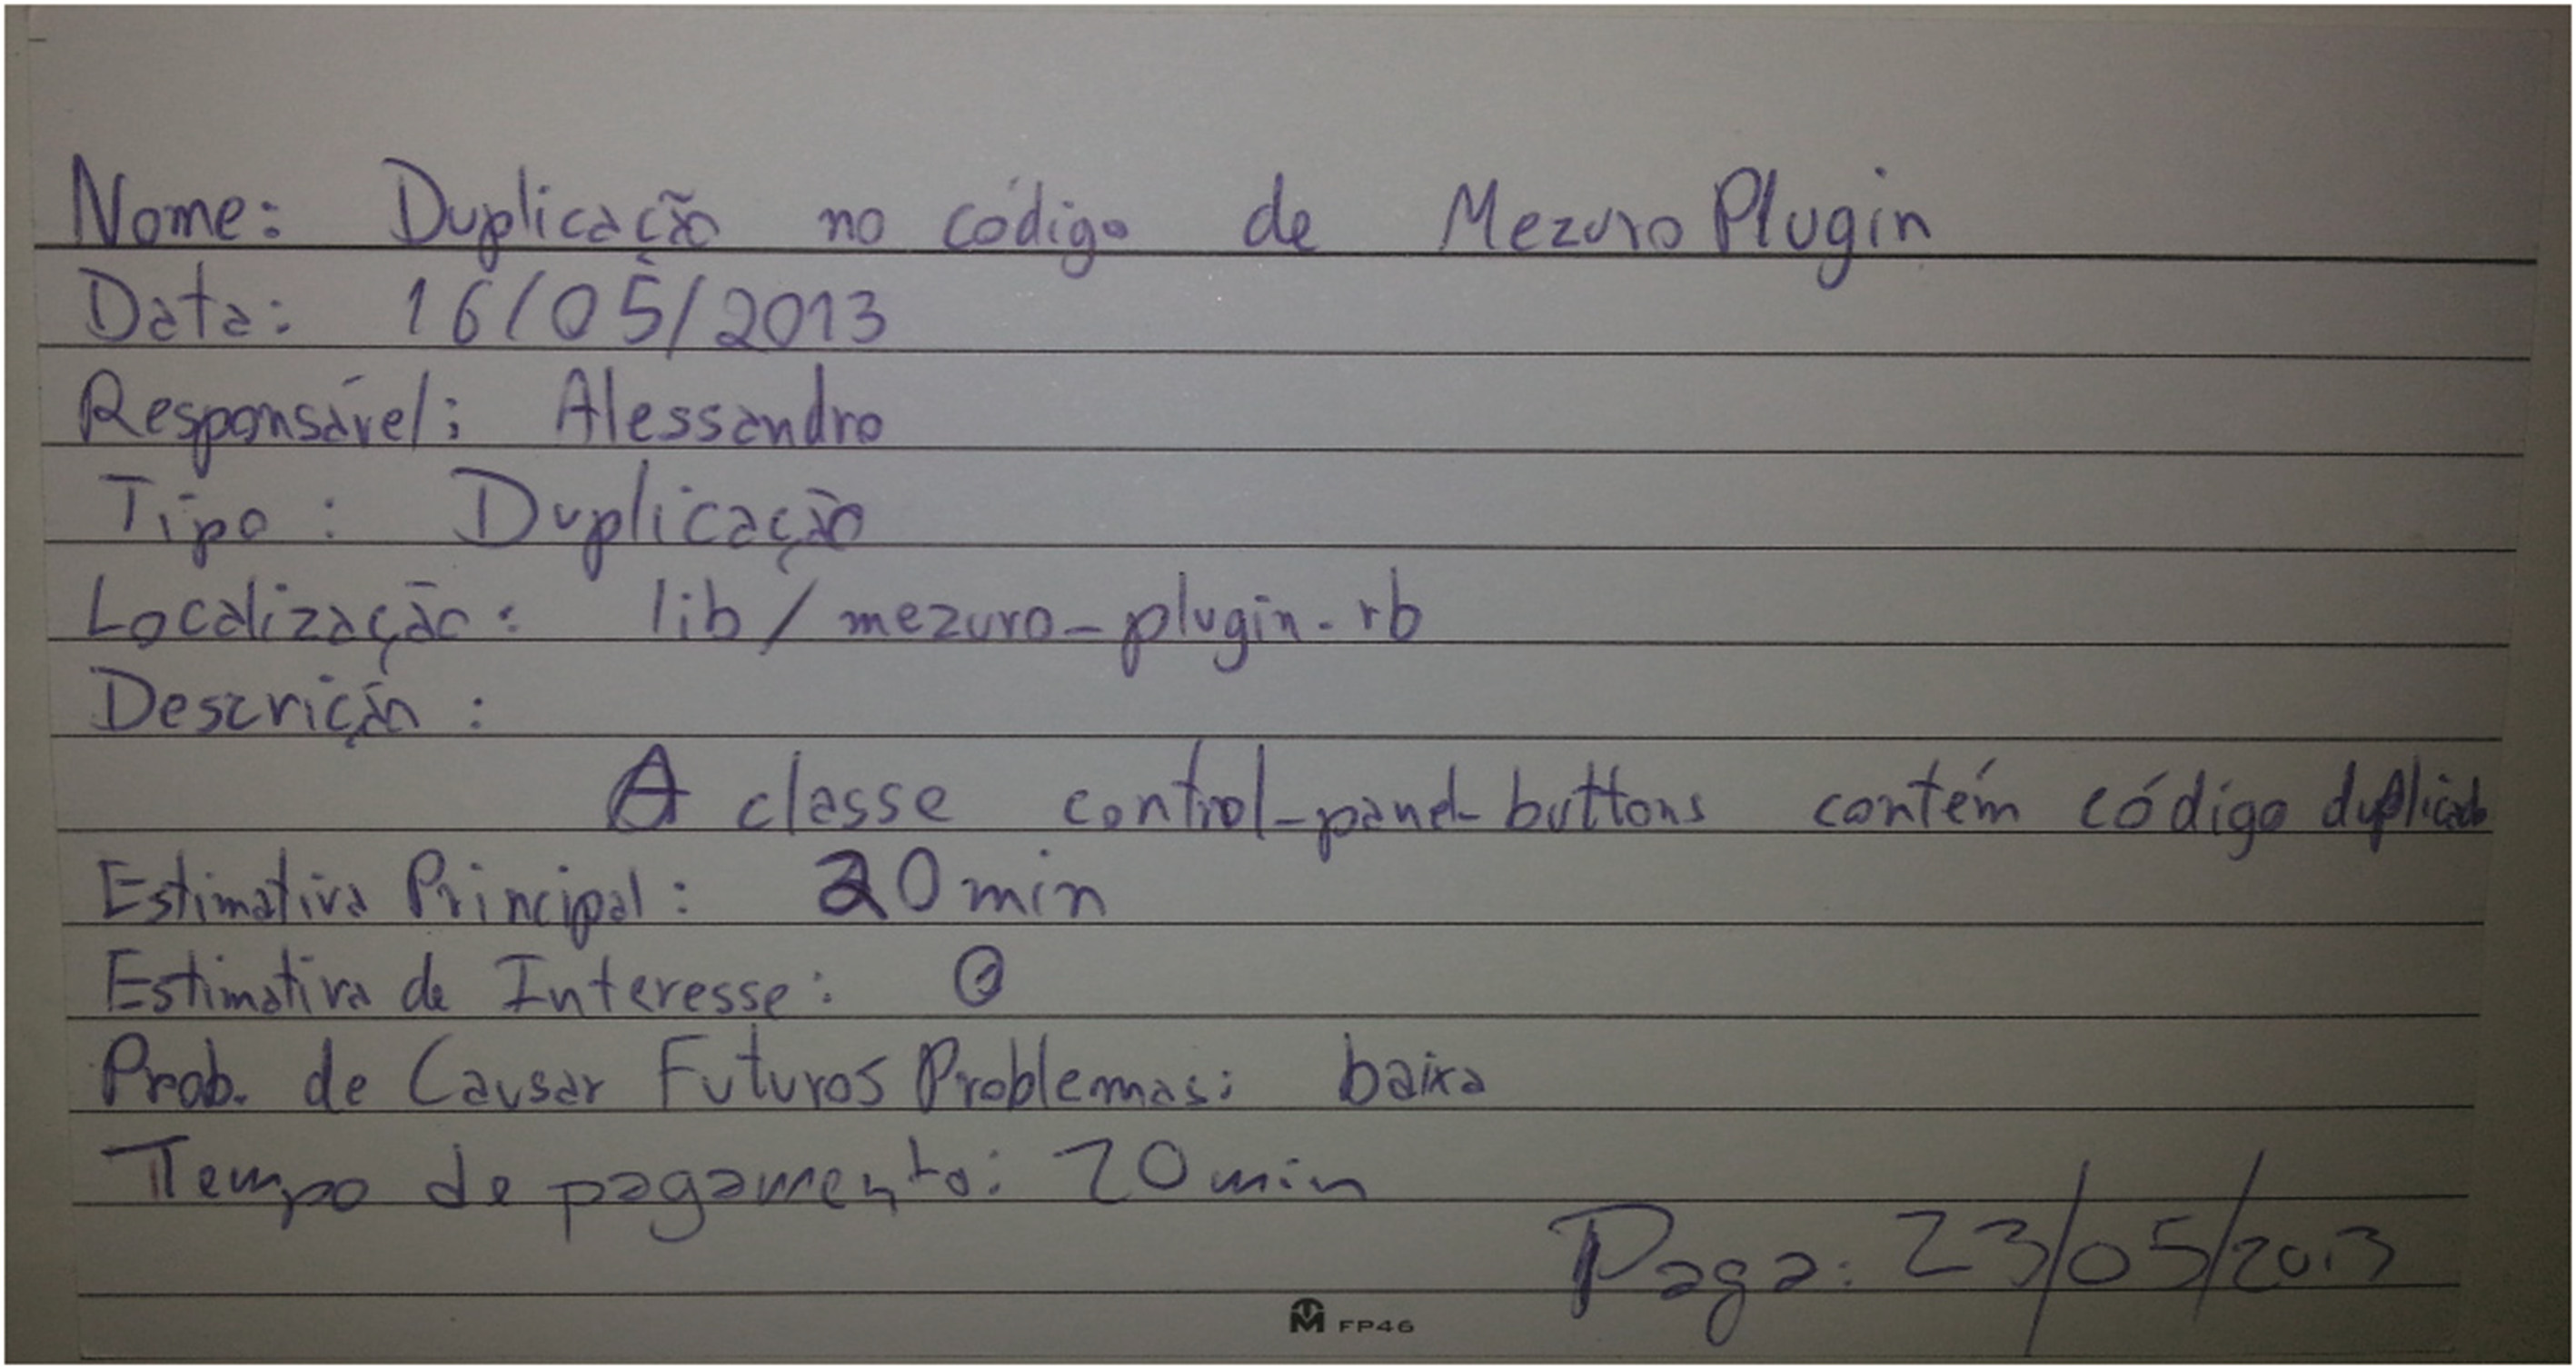 Nome: Duplicação no código de Mezuro Plugin
Data: 16/05/2013
Responsável: Alessandro
Tipo: Duplicação
Localização: lib/mezuro_plugin.rb
Descrição:
A classe control_panel_buttons contém código duplicado
Estimativa Principal: 20 min
Estimativa de Interesse: 0
Prob. de Causar Futuros Problemas: baixa
Tempo de pagamento: 20 min
Paga: 23/05/2013
FP46